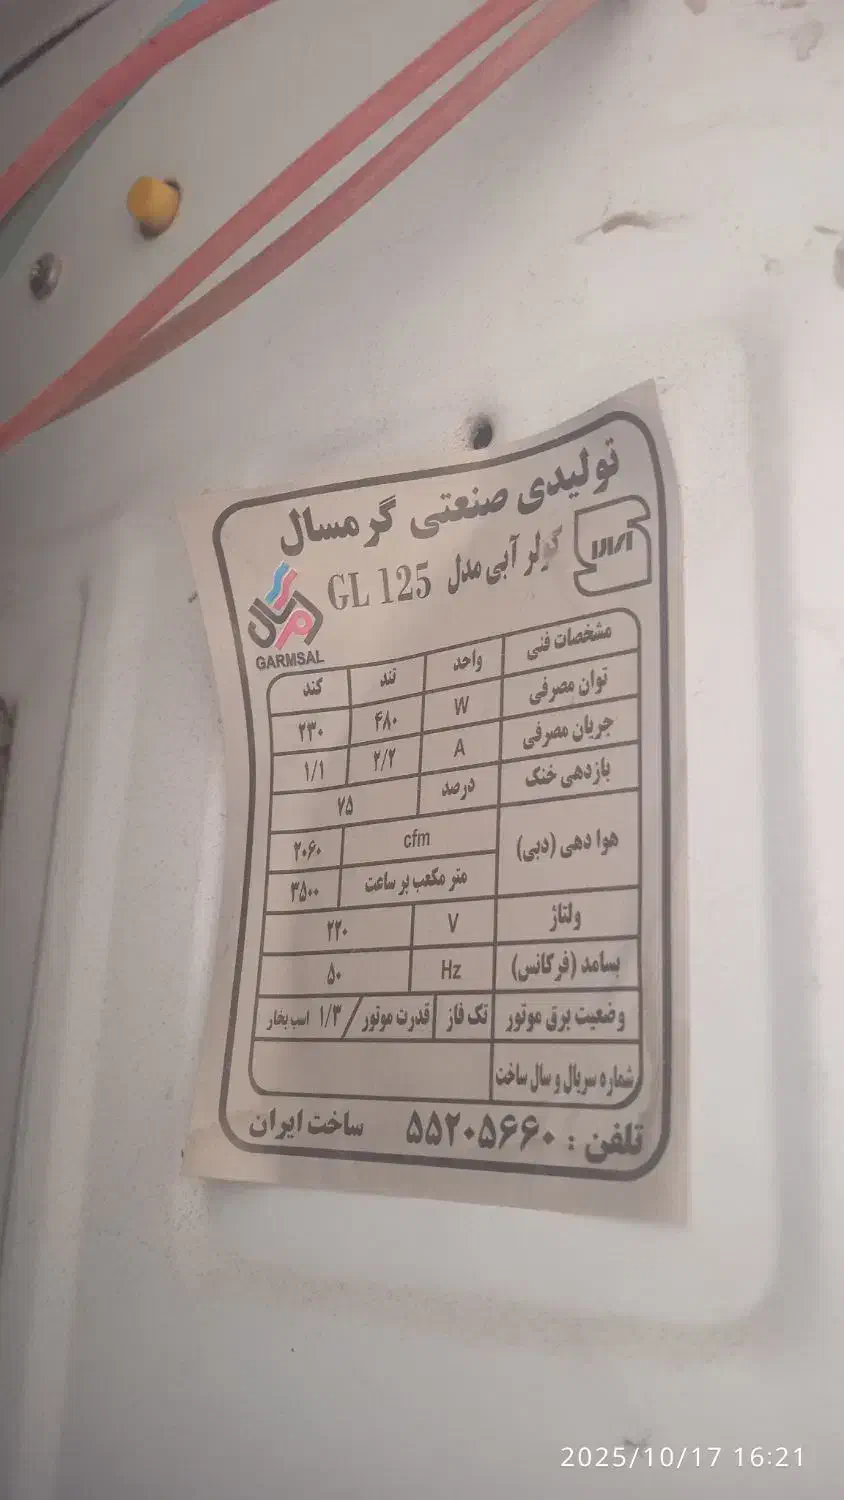 تولیدی صنعتی گرمسال
کولر آبی مدل GL 125
GARMSAL
مشخصات فنی واحد تند کند
توان مصرفی W ۴۸۰ ۲۳۰
جریان مصرفی A ۲/۲ ۱/۱
بازدهی خنک درصد ۷۵
هوا دهی (دبی) cfm ۲۰۶۰
متر مکعب بر ساعت ۳۵۰۰
ولتاژ V ۲۲۰
بسامد (فرکانس) Hz ۵۰
وضعیت برق موتور تک فاز قدرت موتور / ۱/۳ اسب بخار
شماره سریال و سال ساخت
تلفن : ۵۵۲۰۵۶۶۰ ساخت ایران
2025/10/17 16:21